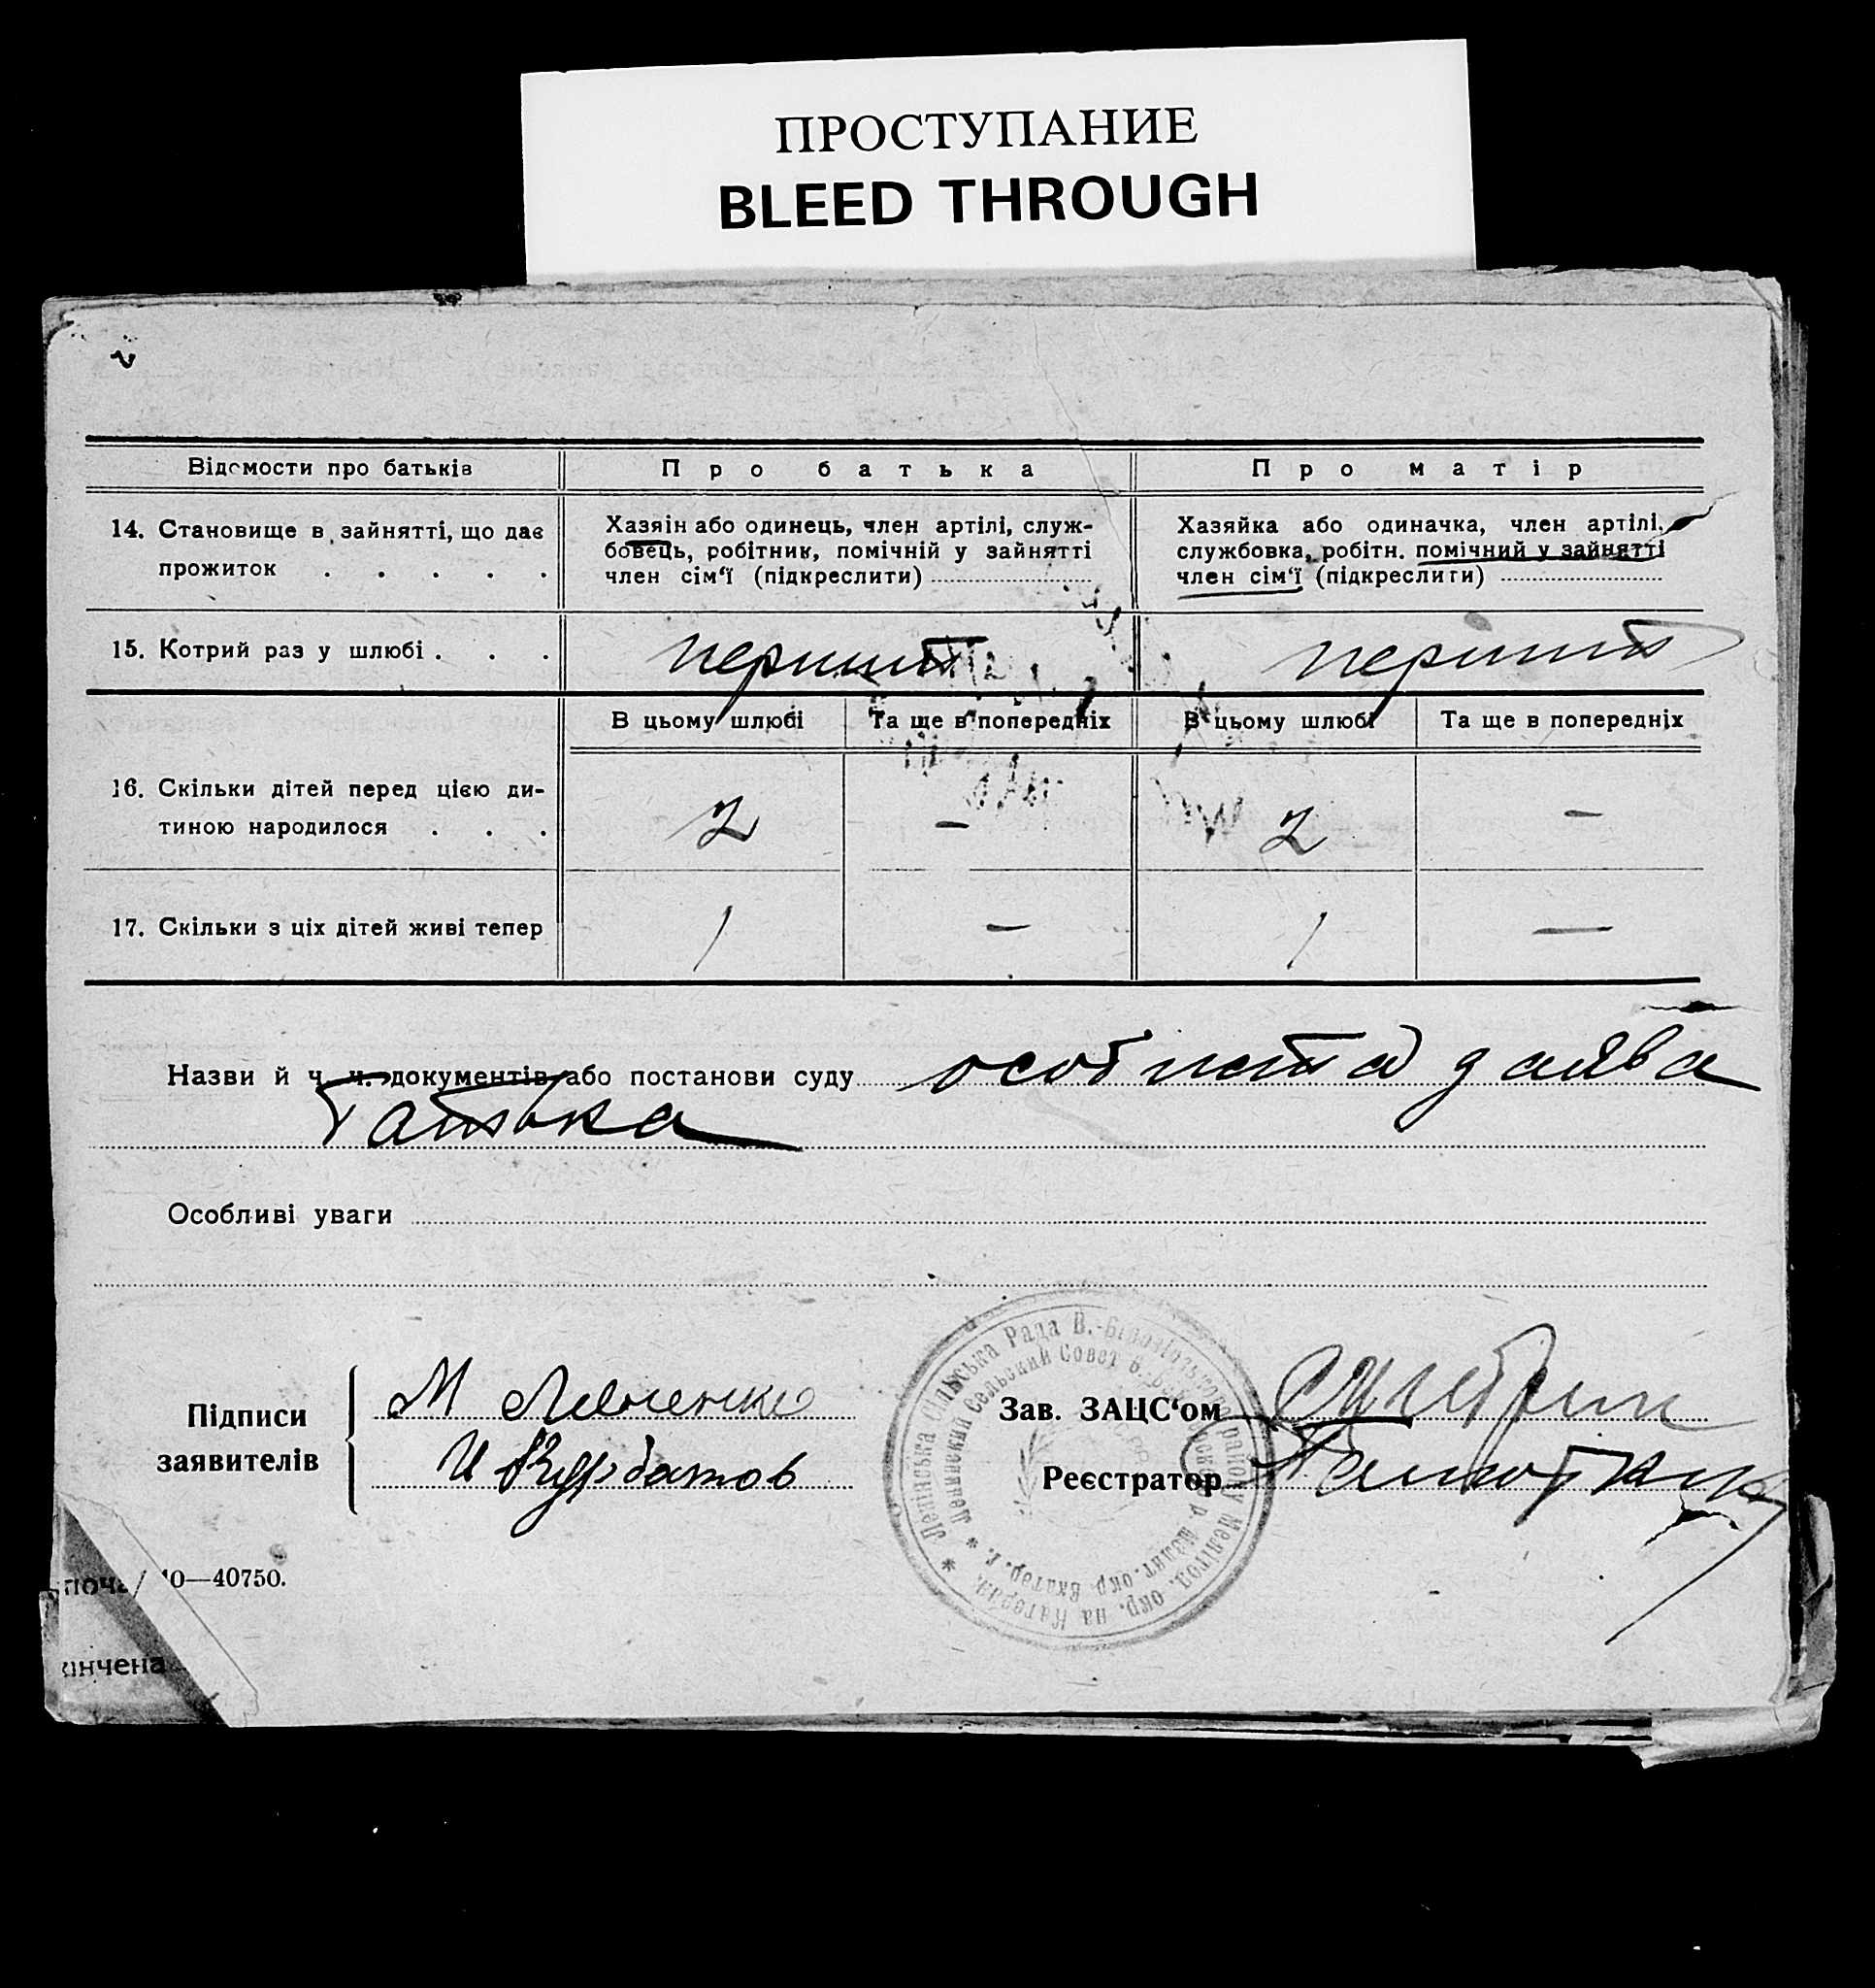 ПРОСТУПАНИЕ
BLEED THROUGH
Відомости про батьків
Про батька
Про матір
14. Становище в зайнятті, що дає
прожиток . . . . .
Хазяін або одинець, член артілі, служ-
бовець, робітник, помічній у зайнятті
член сім'ї (підкреслити)
Хазяйка або одиначка, член артілі,
службовка, робітн. помічний у зайнятті
член сім'ї (підкреслити)
15. Котрий раз у шлюбі . . .
перший
перший
В цьому шлюбі
Та ще в попередніх
В цьому шлюбі
Та ще в попередніх
16. Скільки дітей перед цією ди-
тиною народилося . . .
2
—
2
—
17. Скільки з ціх дітей живі тепер
1
—
1
—
Назви й ч. ч. документів або постанови суду особиста заява
батька
Особливі уваги
Підписи
заявителів
М
И Курбатов
Зав. ЗАЦС'ом
Реєстратор
Ленінська Сільська Рада
Ленинский Сельский Совет
10—40750.
інчена